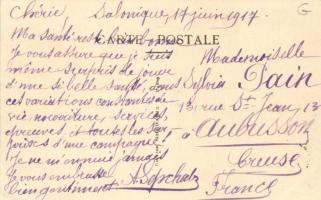 Chérie, Salonique, 17 juin 1917.
CARTE POSTALE
Ma santé est
Je vous assure que je suis
même surpris de jouir
d'une si belle santé, sous
ces variations constantes de
vie, nourriture, services,
épreuves, et toutes les
d'une campagne.
Je ne m'ennuie jamais
Je vous embrasse
bien gentiment.
Mademoiselle
Sylvia Pain
13 rue St Jean, 13
à Aubusson
Creuse
France